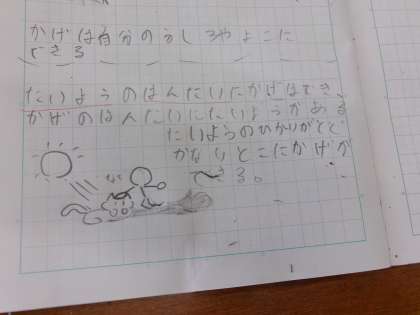 かげは自分のうしろやよこに
できる
たいようのはんたいにかげはでき、
かげのはんたいにたいようがある
たいようのひかりがとど
かないとこにかげが
できる。
1